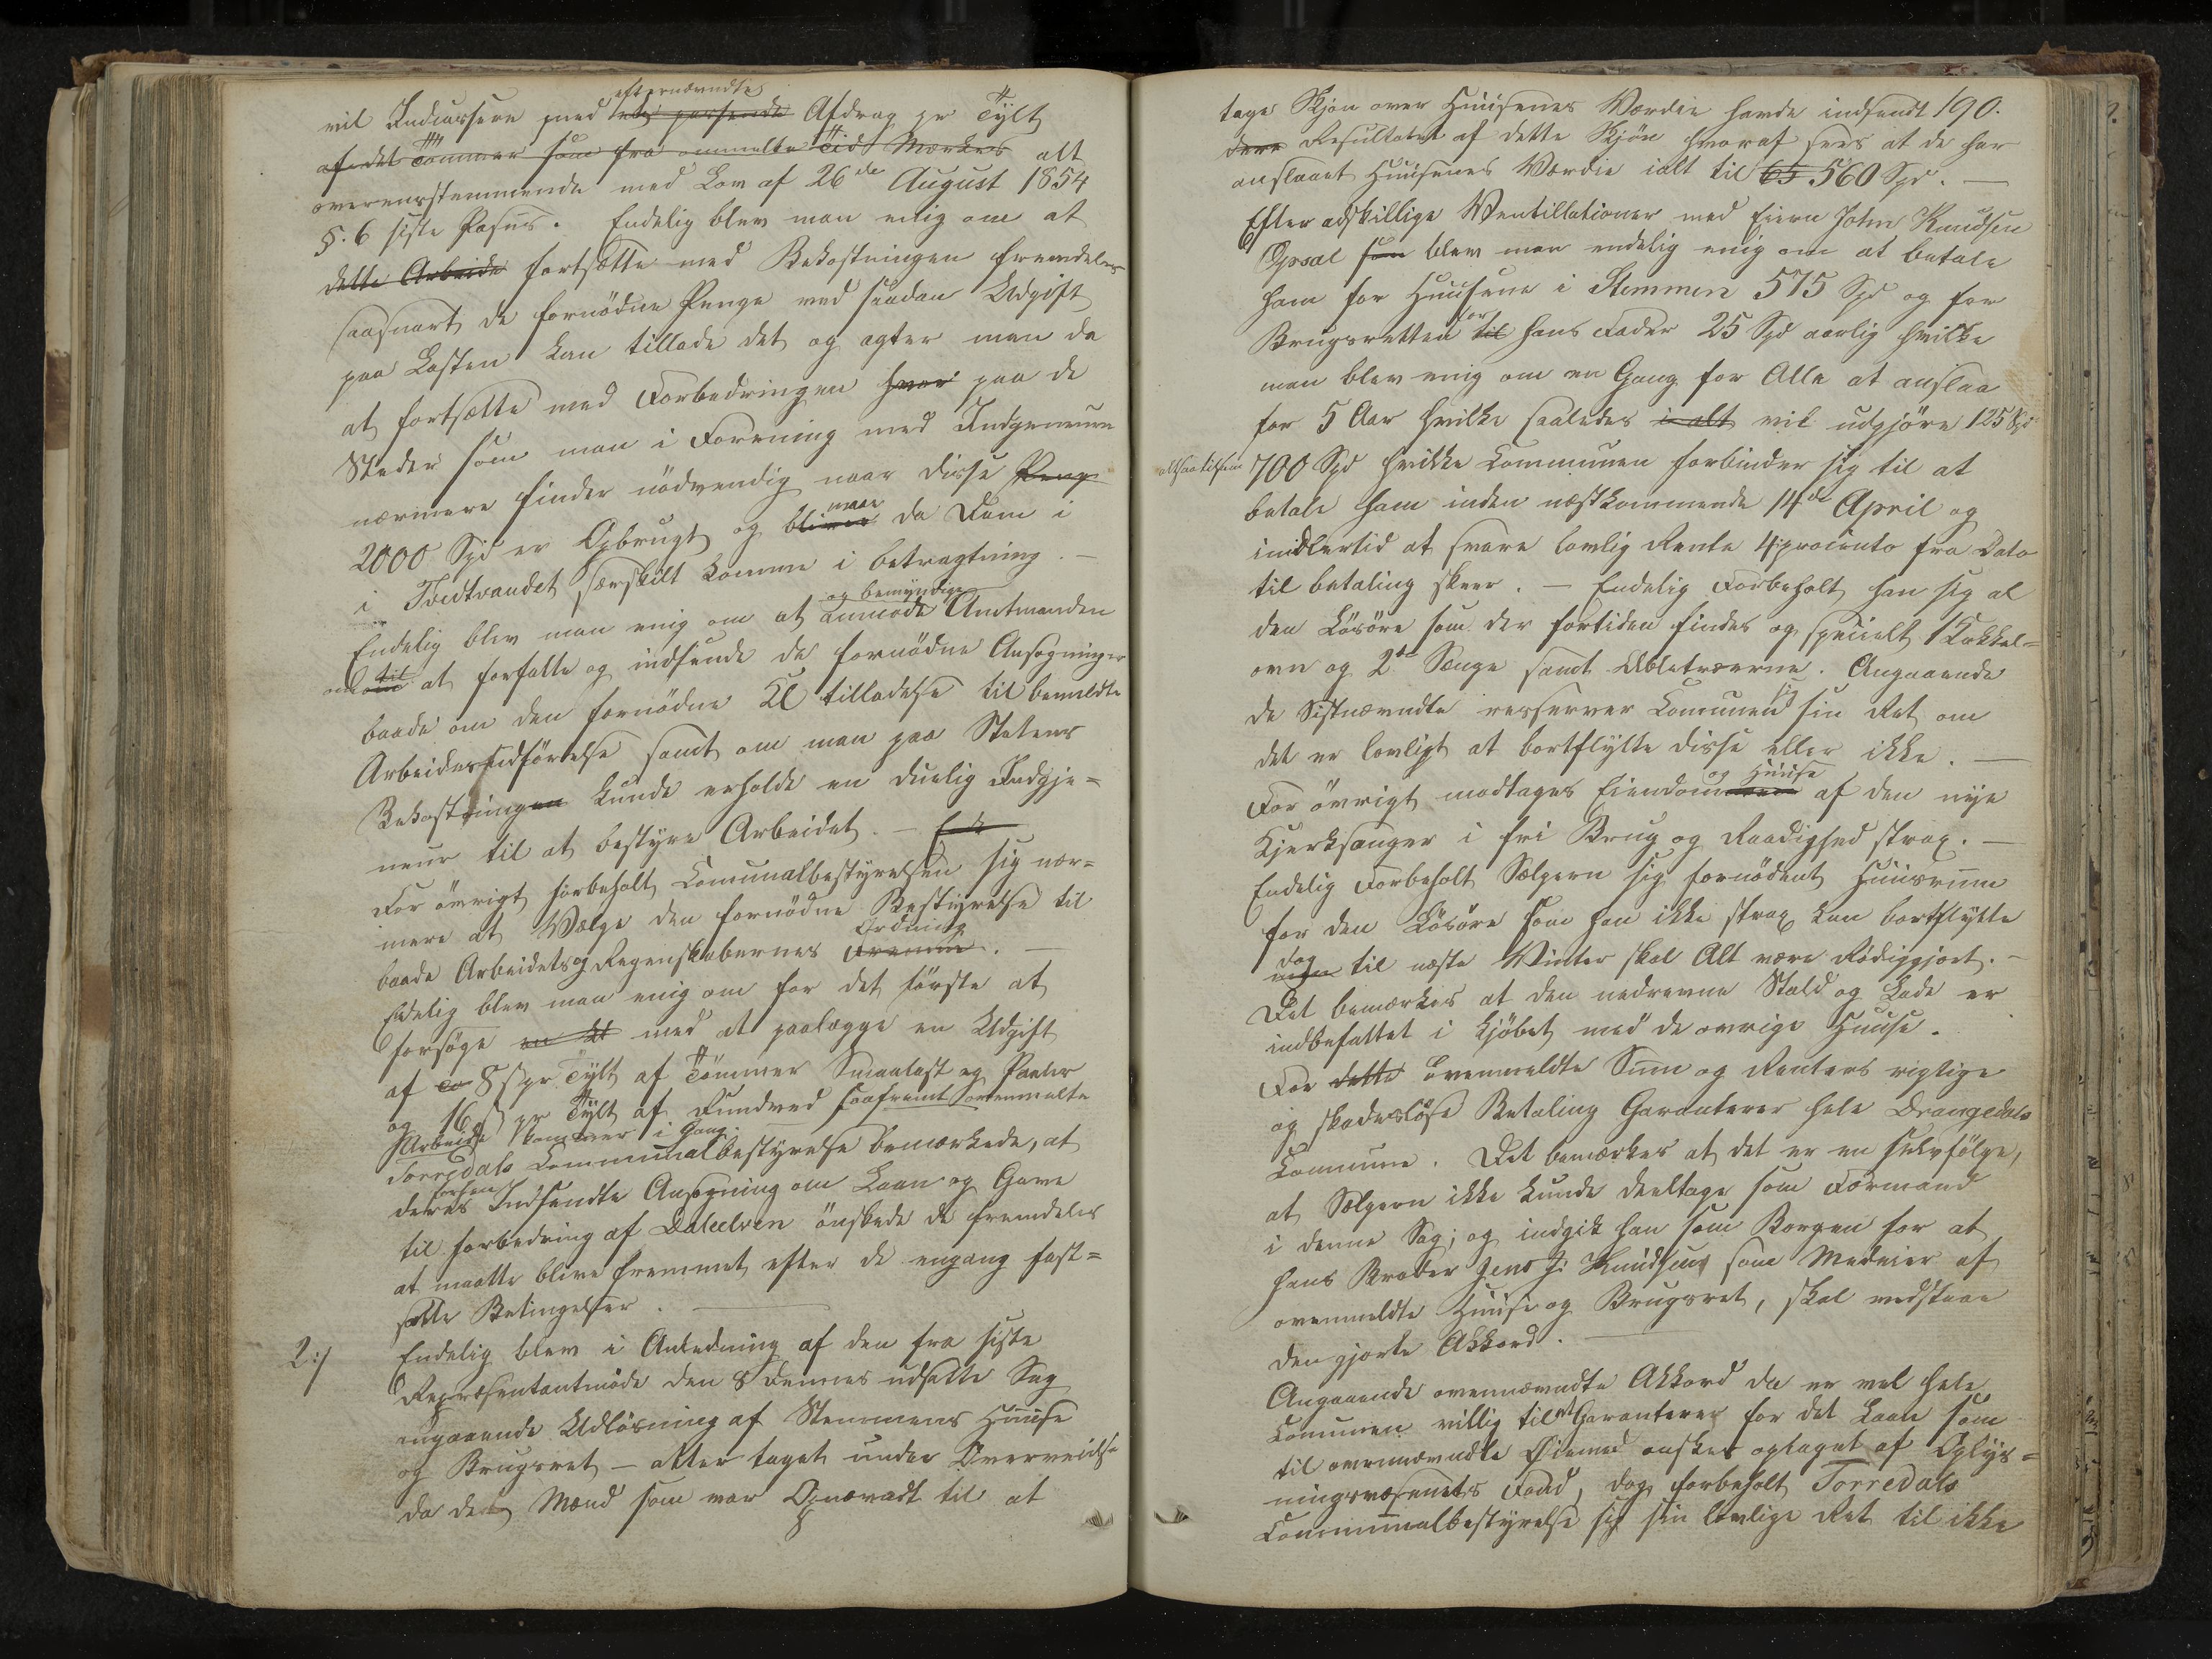 efternævndte
vil Inducassere med et passende Afdrag pr Tylt
af det Tømmer som fra ommeldte Tid Mærkes alt
overensstemmende med Lov af 26de August 1854
§. 6 siste Pasus. Endelig blev man enig om at
dette Arbeide fortsætte med Bekostningen fremdeles
saasnart de fornødne Penge ved saadan Udgift
paa Lasten kan tillade det og agter man da
at fortsætte med Forbedringen hvor paa de
Steder som man i Forening med Indgeneuren
nærmere finder nødvendig naar disse Penge
2000 Spd er Opbrugt og bliver maae da Dam i
i Tvedtvandet særskilt komme i betragtning. —
Endelig blev man enig om at anmode og bemyndige Amtmanden
om til at forfatte og indsende de fornødne Ansøgninger
baade om den fornødne Kl tilladelse til bemeldte
Arbeidesudførelse samt om man paa Statens
Bekostningen kunde erholde en duelig Indgje=
neur til at bestyre Arbeidet. —
For øvrigt forbeholt Comunalbestyrelsen sig nær=
mere at Vælge den fornødne Bestyrelse til
baade Arbeidets og Regenskabernes Fremme Ordning. —
Endelig blev man enig om for det første at
forsøge med at paalægge en Udgift
af 8 s pr Tylt af Tømmer Smaalast og Paaler
og 16 s pr Tylt af Rundved saafremt ovenmelte
Arbeide kommer i Gang.
Torredals Communalbestyrelse bemærkede, at
deres forhen Indsendte Ansøgning om Laan og Gave
til forbedring af Daleelven ønskede de fremdeles
at maatte blive fremmet efter de engang fast=
satte Betingelser. —
2:/ Endelig blev i Anledning af den fra siste
Repræsentantmøde den 8 dennes udsatte Sag
angaaende Udløsning af Stemmens Huuse
og Brugsret — atter taget under Overveielse
da de Mænd som var Opnævndt til at
tage Skjøn over Huusenes Værdie havde indsendt 190.
dere Resultatet af dette Skjøn hvoraf sees at de har
anslaaet Huusenes Værdie ialt til 65 560 Spd. —
Efter adskillige Ventillationer med Eieren John Knudsen
Opsal som blev man endelig enig om at betale
ham for Huusene i Stemmen 575 Spd og for
Brugsretten til hans Fader 25 Spd aarlig hvilke
man blev enig om en Gang for Alle at anslaa
for 5 Aar hvilke saaledes i alt vil udgjøre 125 Spd
altsaa tilsam 700 Spd hvilke Communen forbinder sig til at
betale ham inden næstkommende 14de April og
imidlertid at svare lovlig Rente 4 procento fra Dato
til betaling skeer. — Endelig Forbeholt han sig al
den Løsøre som der fortiden findes og specielt 1 Kakkel=
ovn og 2de Senge samt Abletræerne. Angaaende
de Sistnævndte resserver Comunen sig sin Ret om
det er lovligt at bortflytte disse eller ikke. —
For øvrigt modtages Eiendommen og Huuse af den nye
Kjerksanger i fri Brug og Raadighed strax. —
Endelig Forbeholt Sælgeren sig fornødent Huusrum
for den Løsøre som han ikke strax kan bortflytte
dog til næste Winter skal Alt være Rødiggjort. —
Det bemærkes at den nedrevne Stald og Lade er
indbefattet i Kjøbet med de øvrige Huuse.
For dette ovenmeldte Sum og Rentens rigtige
og skadesløse Betaling Garanterer hele Drangedals
Commune. Det bemærkes at det er en selvfølge,
at Sælgeren ikke kunde deeltage som Formand
i denne Sag; og indgik han som Borgen for at
hans Broder Jens J. Knudsen som Medeier af
ovenmeldte Huuse og Brugsret, skal vedstaae
den gjorte Akkord. —
Angaaende ovennævndte Akkord da er vel hele
Comunen villig til at Garanterer for det Laan som
til ovennævndte Øiemed ønskes optaget af Oplys=
ningsvæsenets Fond, dog forbeholt Torredals
Communalbestyrelse sig sin lovlige Ret til ikke